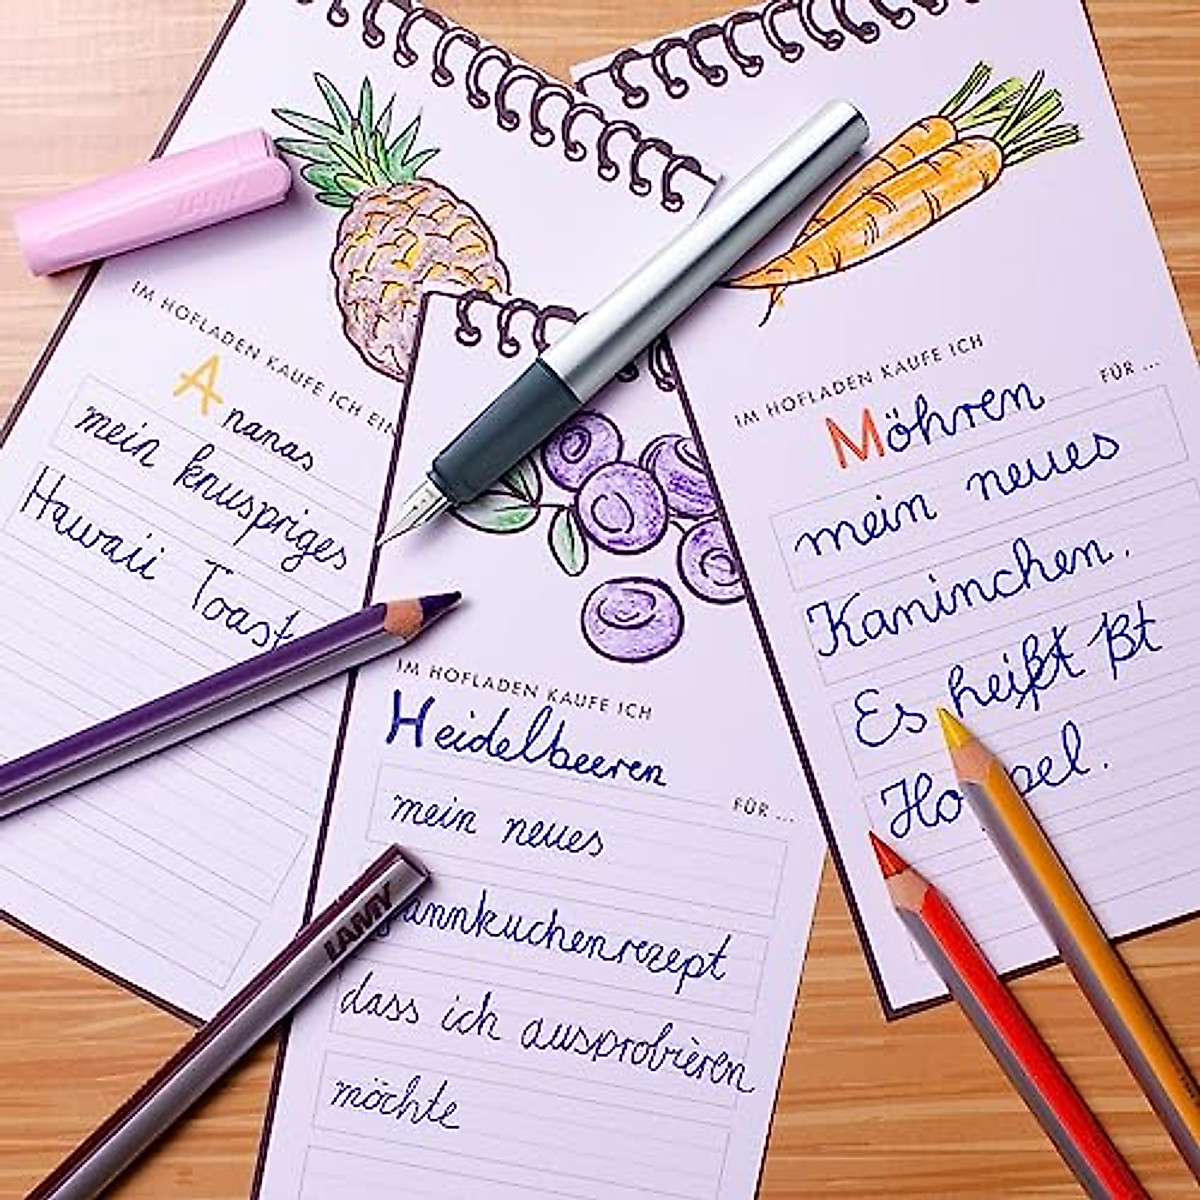 IM HOFLADEN KAUFE ICH EIN
Ananas
mein knuspriges
Hawaii Toast
IM HOFLADEN KAUFE ICH
Heidelbeeren
FÜR ...
mein neues
annkuchenrezept
dass ich ausprobieren
möchte
IM HOFLADEN KAUFE ICH
Möhren
FÜR ...
mein neues
Kaninchen.
Es heißt
Ho pel.
LAMY
LAMY